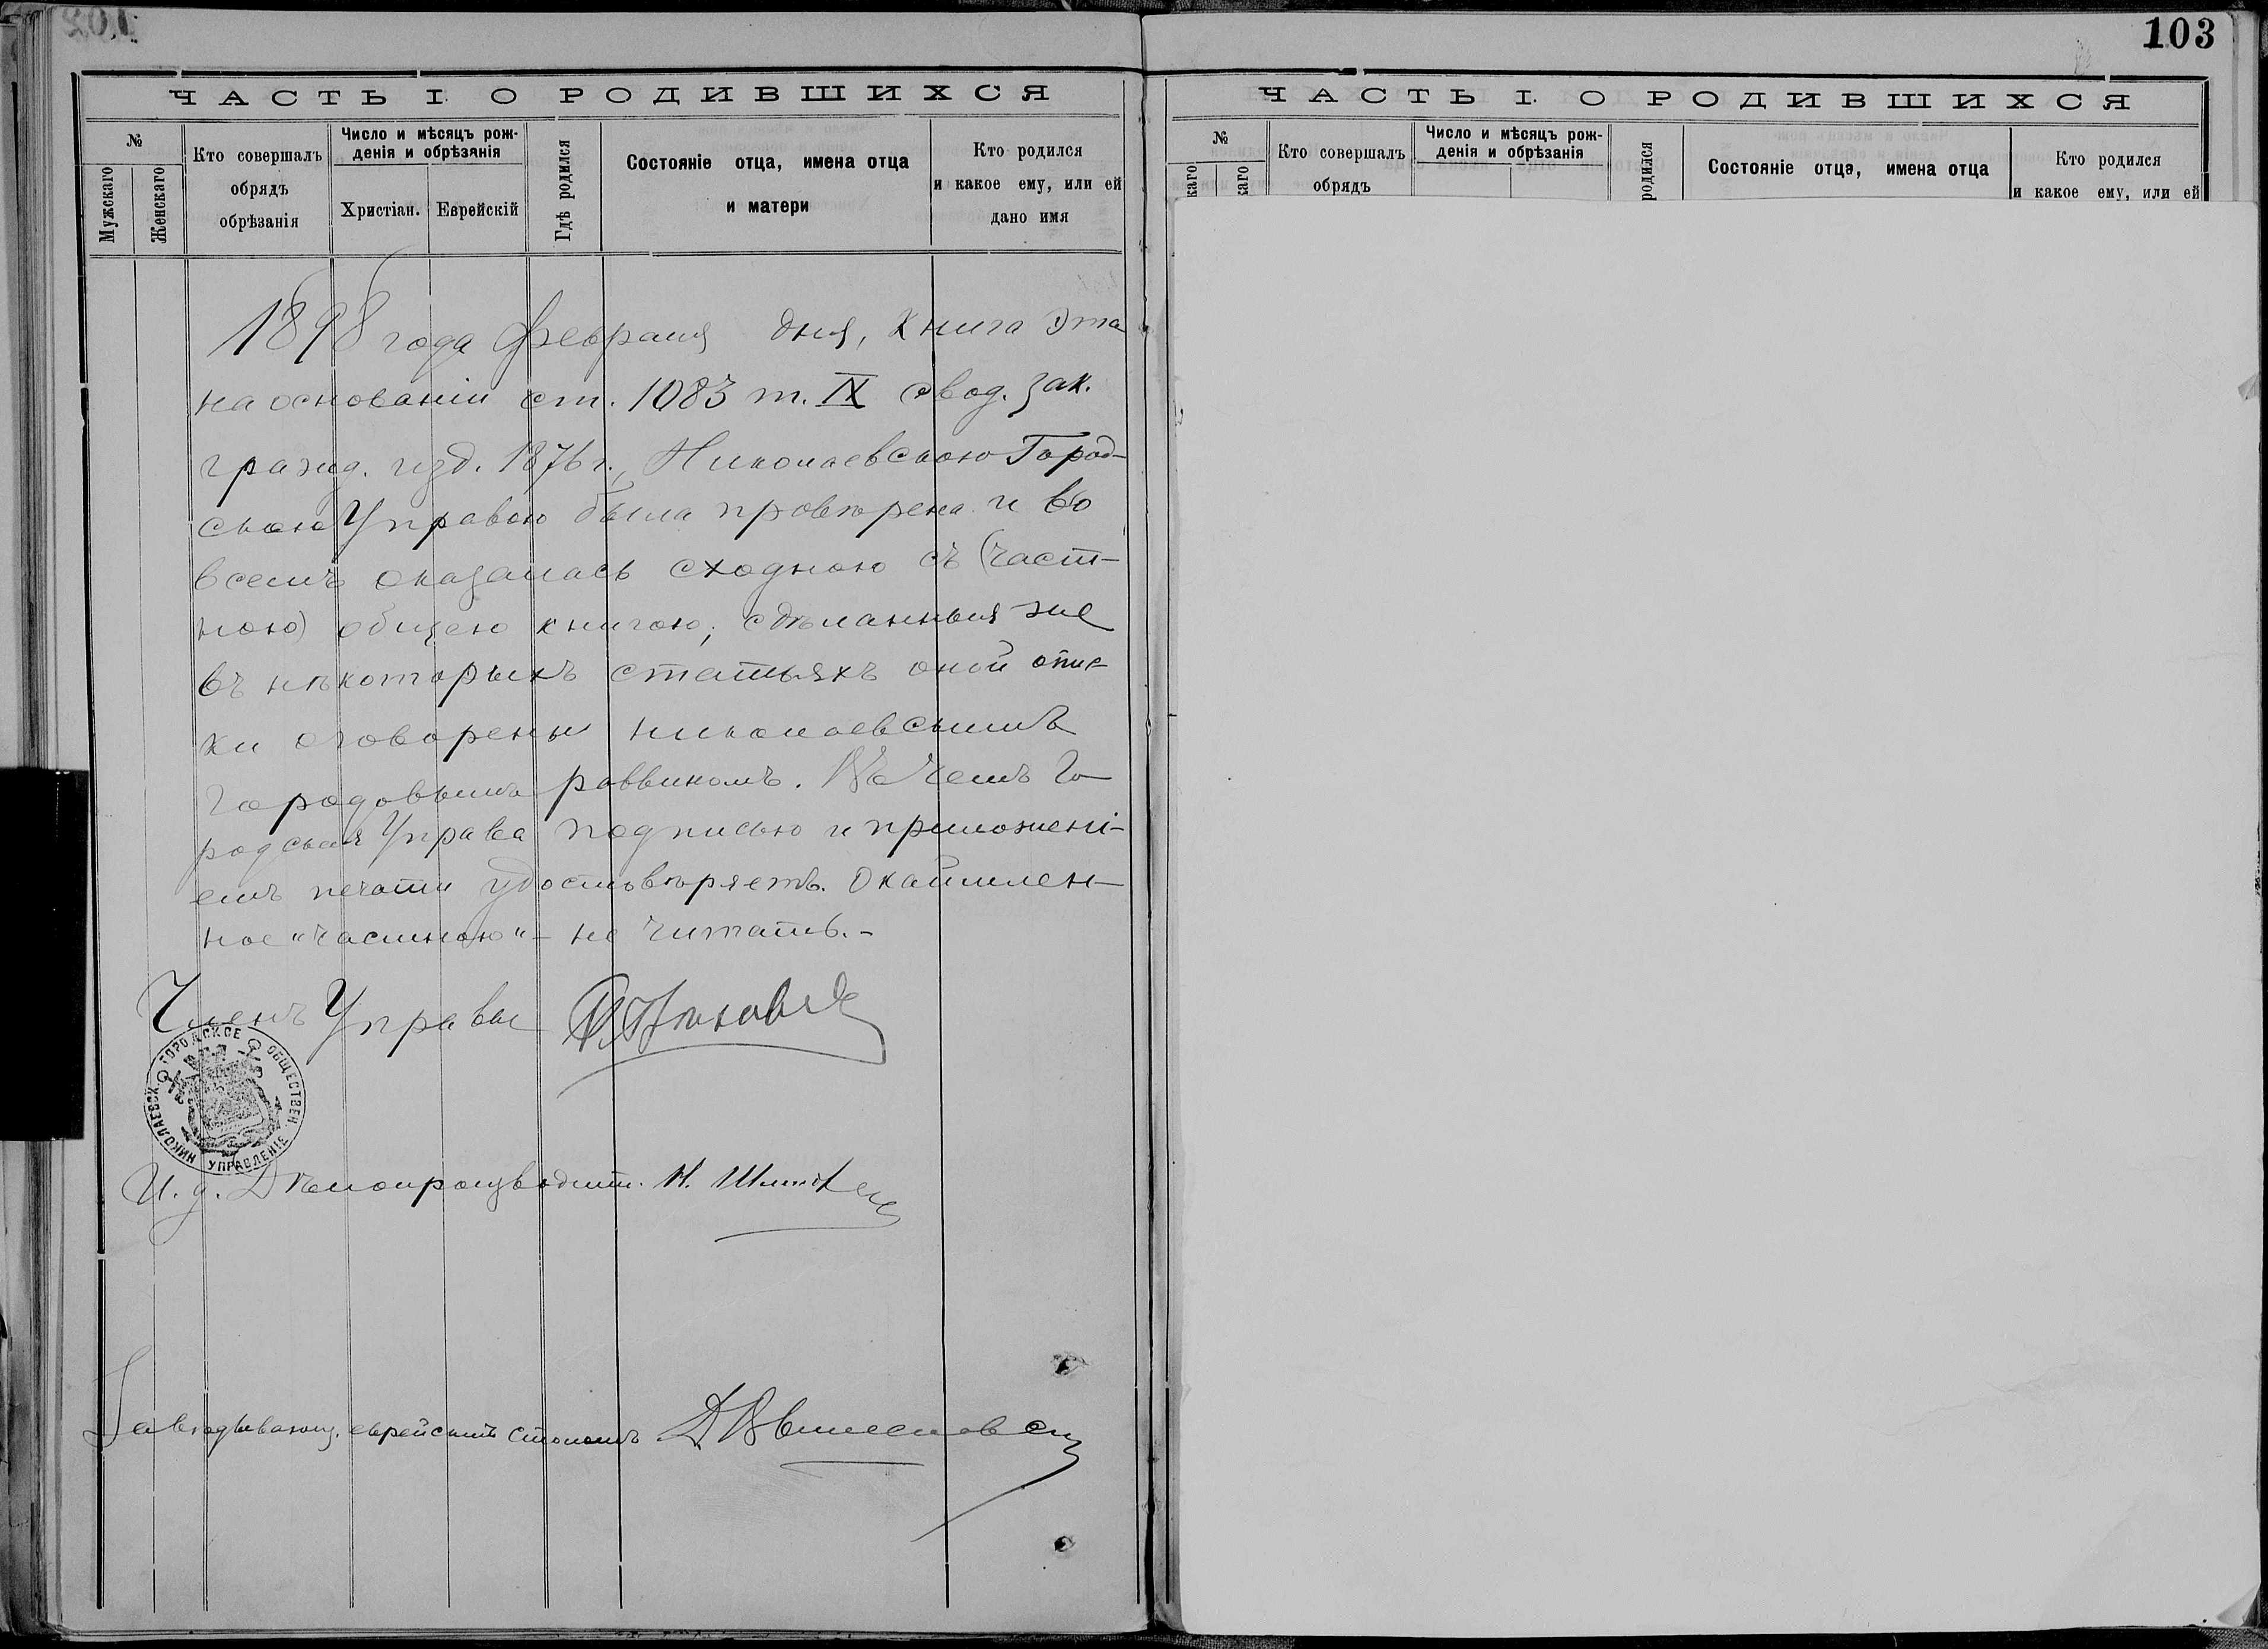 103
ЧАСТЬ I. О РОДИВШИХСЯ
№
Мужскаго
Женскаго
Кто совершалъ обрядъ обрѣзанія
Число и мѣсяцъ рожденія и обрѣзанія
Христіан.
Еврейскій
Гдѣ родился
Состояніе отца, имена отца и матери
Кто родился и какое ему, или ей дано имя
1898 года Февраля дня, книга эта
на основаніи ст. 1083 т. IX свод. зак.
гражд. изд. 1876 г., Николаевскою Город-
скою Управою была провѣрена и во
всемъ оказалась сходною съ (част-
ною) общею книгою; сдѣланныя же
въ нѣкоторыхъ статьяхъ оной опис-
ки оговорены николаевскимъ
городовымъ раввиномъ. Въ чемъ Го-
родская Управа подписью и приложені-
емъ печати удостовѣряетъ. Окаймлен-
ное "частною" - не читать. -
Членъ Управы
НИКОЛАЕВСК. ГОРОДСКОЕ ОБЩЕСТВЕН. УПРАВЛЕНІЕ
И. д. Дѣлопроизводит. Н.
Завѣдывающ. еврейскимъ столомъ
ЧАСТЬ I. О РОДИВШИХСЯ
№
каго
каго
Кто совершалъ обрядъ
Число и мѣсяцъ рожденія и обрѣзанія
родился
Состояніе отца, имена отца
Кто родился и какое ему, или ей